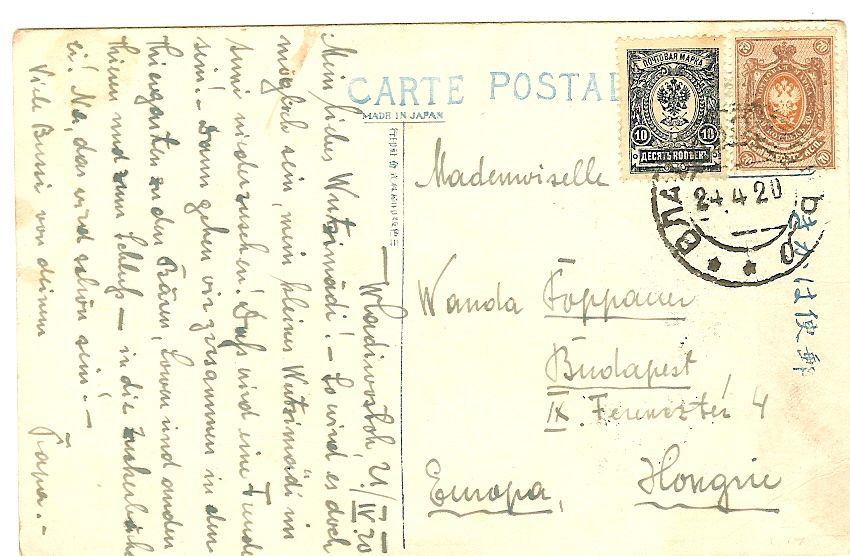 CARTE POSTAL
MADE IN JAPAN
ПОЧТОВАЯ МАРКА
10 10
ДЕСЯТЬ КОПѢЕКЪ
70 70
70 70
ВЛА
24.4.20
Mademoiselle
Wanda Toppauer
Budapest
IX. Ferencztér 4
Europa, Hongrie
きかは便郵
Wladiwostok, 21/IV 20
Mein liebes Wutzimädi! – So wird es doch
möglich sein, mein kleines Wutzimädi im
Juni wiederzusehen! Das wird eine Freude
sein! – Dann gehen wir zusammen in den
Thiergarten zu den Bären, Löwen und anderen
Thieren und zum Schluß – in die
ei! Na, das wird schön sein! –
Viele Bussi von deinem
Papa. –